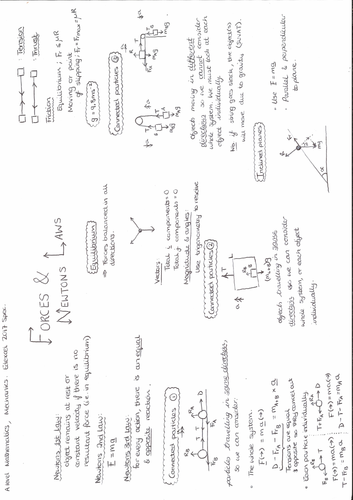 A level Mathematics, Mechanics. Edexcel 2017 Spec.
FORCES &
NEWTONS
LAWS
Newtons 1st law:
object remains at rest or
constant velocity if there is no
resultant force (i.e. in equilibrium)
Newtons 2nd law:
F = ma
Newtons 3rd law:
for every action, there is an equal
& opposite reaction.
Connected particles ①
particles travelling in same direction,
so we can consider
• the whole system
F(→) = ma(→)
Tensions are equal
& opposite so they cancel out
• Each particle individually
F(→) = ma(→)
T - FB = MB a
F(→) = ma(→)
D - T - FA = MA a
Equilibrium
⇒ Forces balanced in all
directions.
Vectors:
Total i components = 0
Total j components = 0
Magnitude & angles
Use trigonometry to resolve
Connected particles ②
objects travelling in same
direction so we can consider
whole system, or each object
individually.
: Tension
: Thrust
Friction
Equilibrium; Fr ≤ μR
Moving or point
of slipping; Fr = Fmax = μR
g = 9.8ms⁻²
Connected particles ③
objects moving in different
directions so we cannot consider
whole system. We must look at each
object individually.
NB If string goes slack, the objects
will move due to gravity (SUVAT).
Inclined planes
• Use F = ma
• Parallel & perpendicular
to plane.